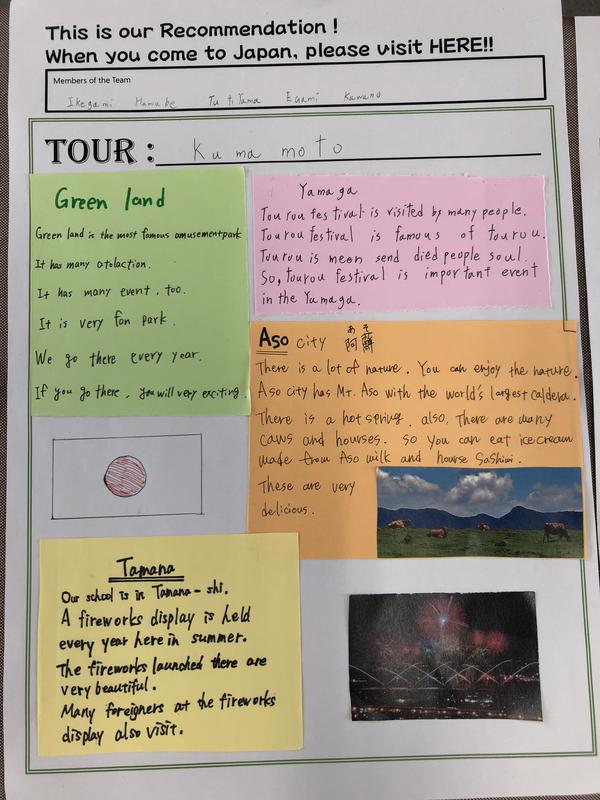 This is our Recommendation !
When you come to Japan, please visit HERE!!
Members of the Team
Ikegami Hamabe Tutiyama Egami Kuwano
TOUR : Kumamoto
Green land
Green land is the most famous amusementpark
It has many atolaction.
It has many event, too.
It is very fon park.
We go there every year.
If you go there, you will very exciting.
Yamaga
Tourou festival is visited by many people.
Tourou festival is famous of tourou.
Tourou is meen send died people soul.
So, tourou festival is important event
in the Yamaga.
あ そ
Aso city 阿蘇
There is a lot of nature. You can enjoy the nature.
Aso city has Mt. Aso with the world's largest caldera.
There is a hot spring. also, There are many
caws and hourses. so you can eat ice cream
made from Aso milk and hourse Sashimi.
These are very
delicious.
Tamana
Our school is in Tamana-shi.
A fireworks display is held
every year here in summer.
The fireworks launched there are
very beautiful.
Many foreigners at the fireworks
display also visit.